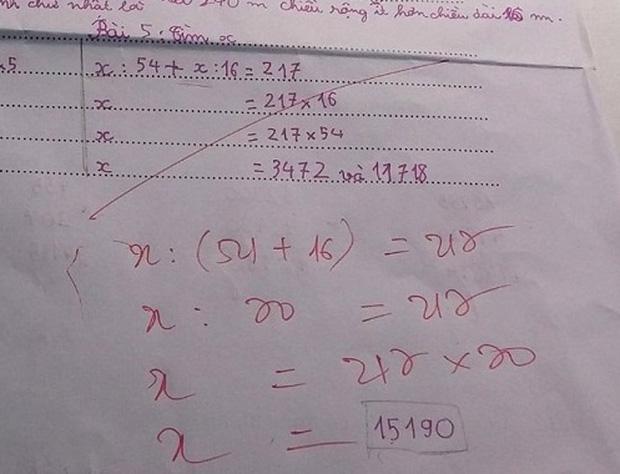 chữ nhật m chiều rộng ít hơn chiều dài 16 m.
Bài 5: Tìm x
x5
x : 54 + x : 16 = 217
x = 217 x 16
x = 217 x 54
x = 3472 và 11718
x : (54 + 16) = 217
x : 70 = 217
x = 217 x 70
x = 15190